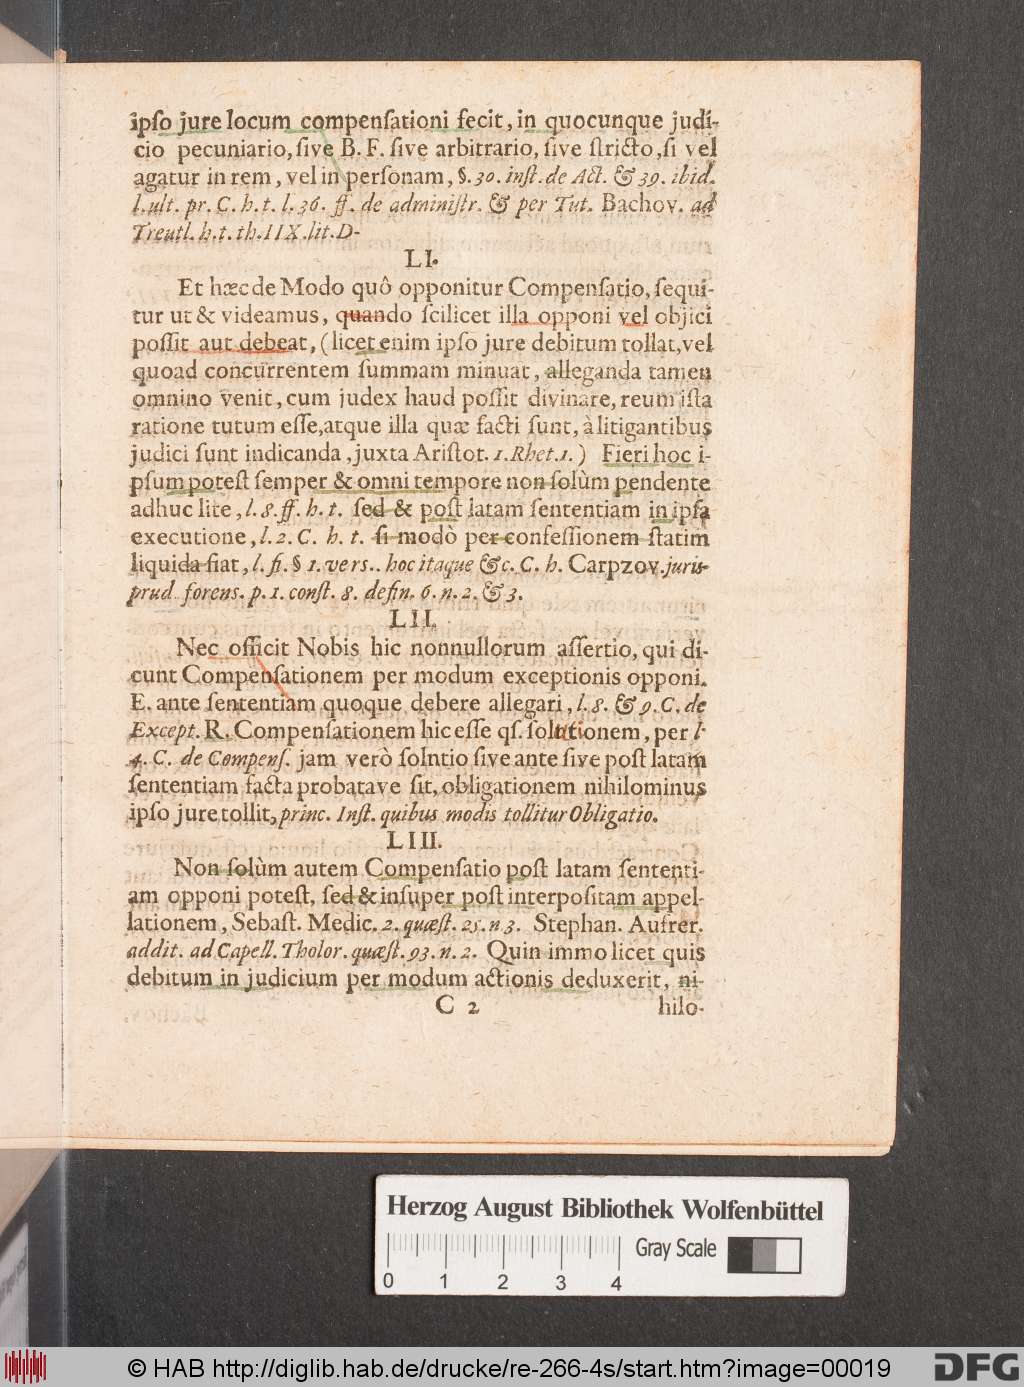 ipſo jure locum compenſationi fecit, in quocunque judi-
cio pecuniario, ſive B. F. ſive arbitrario, ſive ſtricto, ſi vel
agatur in rem, vel in perſonam, §. 30. inſt. de Act. & 39. ibid.
l. ult. pr. C. h. t. l. 36. ff. de adminiſtr. & per Tut. Bachov. ad
Treutl. h. t. th. IIX. lit. D-
LI.
Et hæc de Modo quô opponitur Compenſatio, ſequi-
tur ut & videamus, quando ſcilicet illa opponi vel objici
poſſit aut debeat, (licet enim ipſo jure debitum tollat, vel
quoad concurrentem ſummam minuat, alleganda tamen
omnino venit, cum judex haud poſſit divinare, reum iſta
ratione tutum eſſe, atque illa quæ facti ſunt, à litigantibus
judici ſunt indicanda, juxta Ariſtot. 1. Rhet. 1.) Fieri hoc i-
pſum poteſt ſemper & omni tempore non ſolùm pendente
adhuc lite, l. 8. ff. h. t. ſed & poſt latam ſententiam in ipſa
executione, l. 2. C. h. t. ſi modò per confeſſionem ſtatim
liquida fiat, l. fi. § 1. verſ.. hoc itaque &c. C. h. Carpzov. juris-
prud. forens. p. 1. conſt. 8. defin. 6. n. 2. & 3.
LII.
Nec officit Nobis hic nonnullorum aſſertio, qui di-
cunt Compenſationem per modum exceptionis opponi.
E. ante ſententiam quoque debere allegari, l. 8. & 9. C. de
Except. R. Compenſationem hic eſſe qſ. ſolutionem, per l.
4. C. de Compenſ. jam verò ſolntio ſive ante ſive poſt latam
ſententiam facta probatave ſit, obligationem nihilominus
ipſo jure tollit, princ. Inſt. quibus modis tollitur Obligatio.
LIII.
Non ſolùm autem Compenſatio poſt latam ſententi-
am opponi poteſt, ſed & inſuper poſt interpoſitam appel-
lationem, Sebaſt. Medic. 2. quæſt. 25. n 3. Stephan. Aufrer.
addit. ad Capell. Tholor. quæſt. 93. n. 2. Quin immo licet quis
debitum in judicium per modum actionis deduxerit, ni-
C 2 hilo-
Herzog August Bibliothek Wolfenbüttel
Gray Scale
0 1 2 3 4
© HAB http://diglib.hab.de/drucke/re-266-4s/start.htm?image=00019
DFG